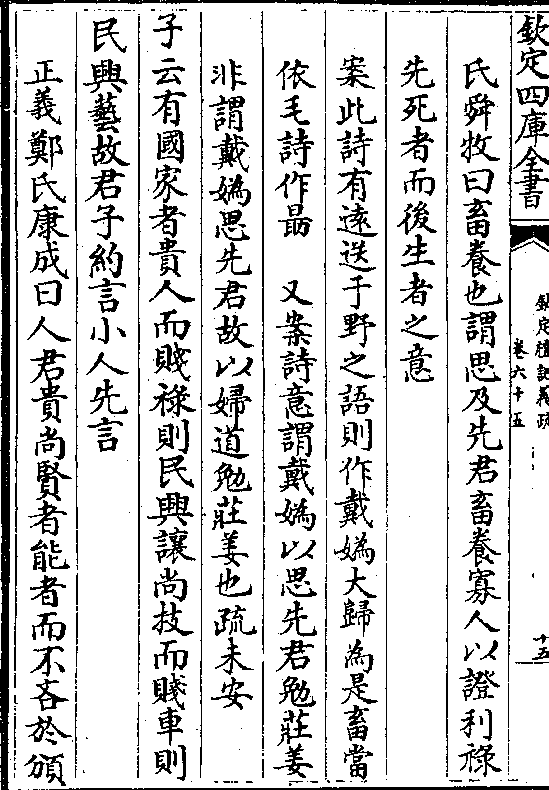 欽定四庫全書
欽定禮記義疏
卷六十五
十五
氏舜牧曰畜養也謂思及先君畜養寡人以證利祿
先死者而後生者之意
案此詩有遠送于野之語則作戴媯大歸為是畜當
依毛詩作勗　又案詩意謂戴媯以思先君勉莊姜
非謂戴媯思先君故以婦道勉莊姜也疏未安
子云有國家者貴人而賤祿則民興讓尚技而賤車則
民興藝故君子約言小人先言
正義鄭氏康成曰人君貴尚賢者能者而不吝於頒